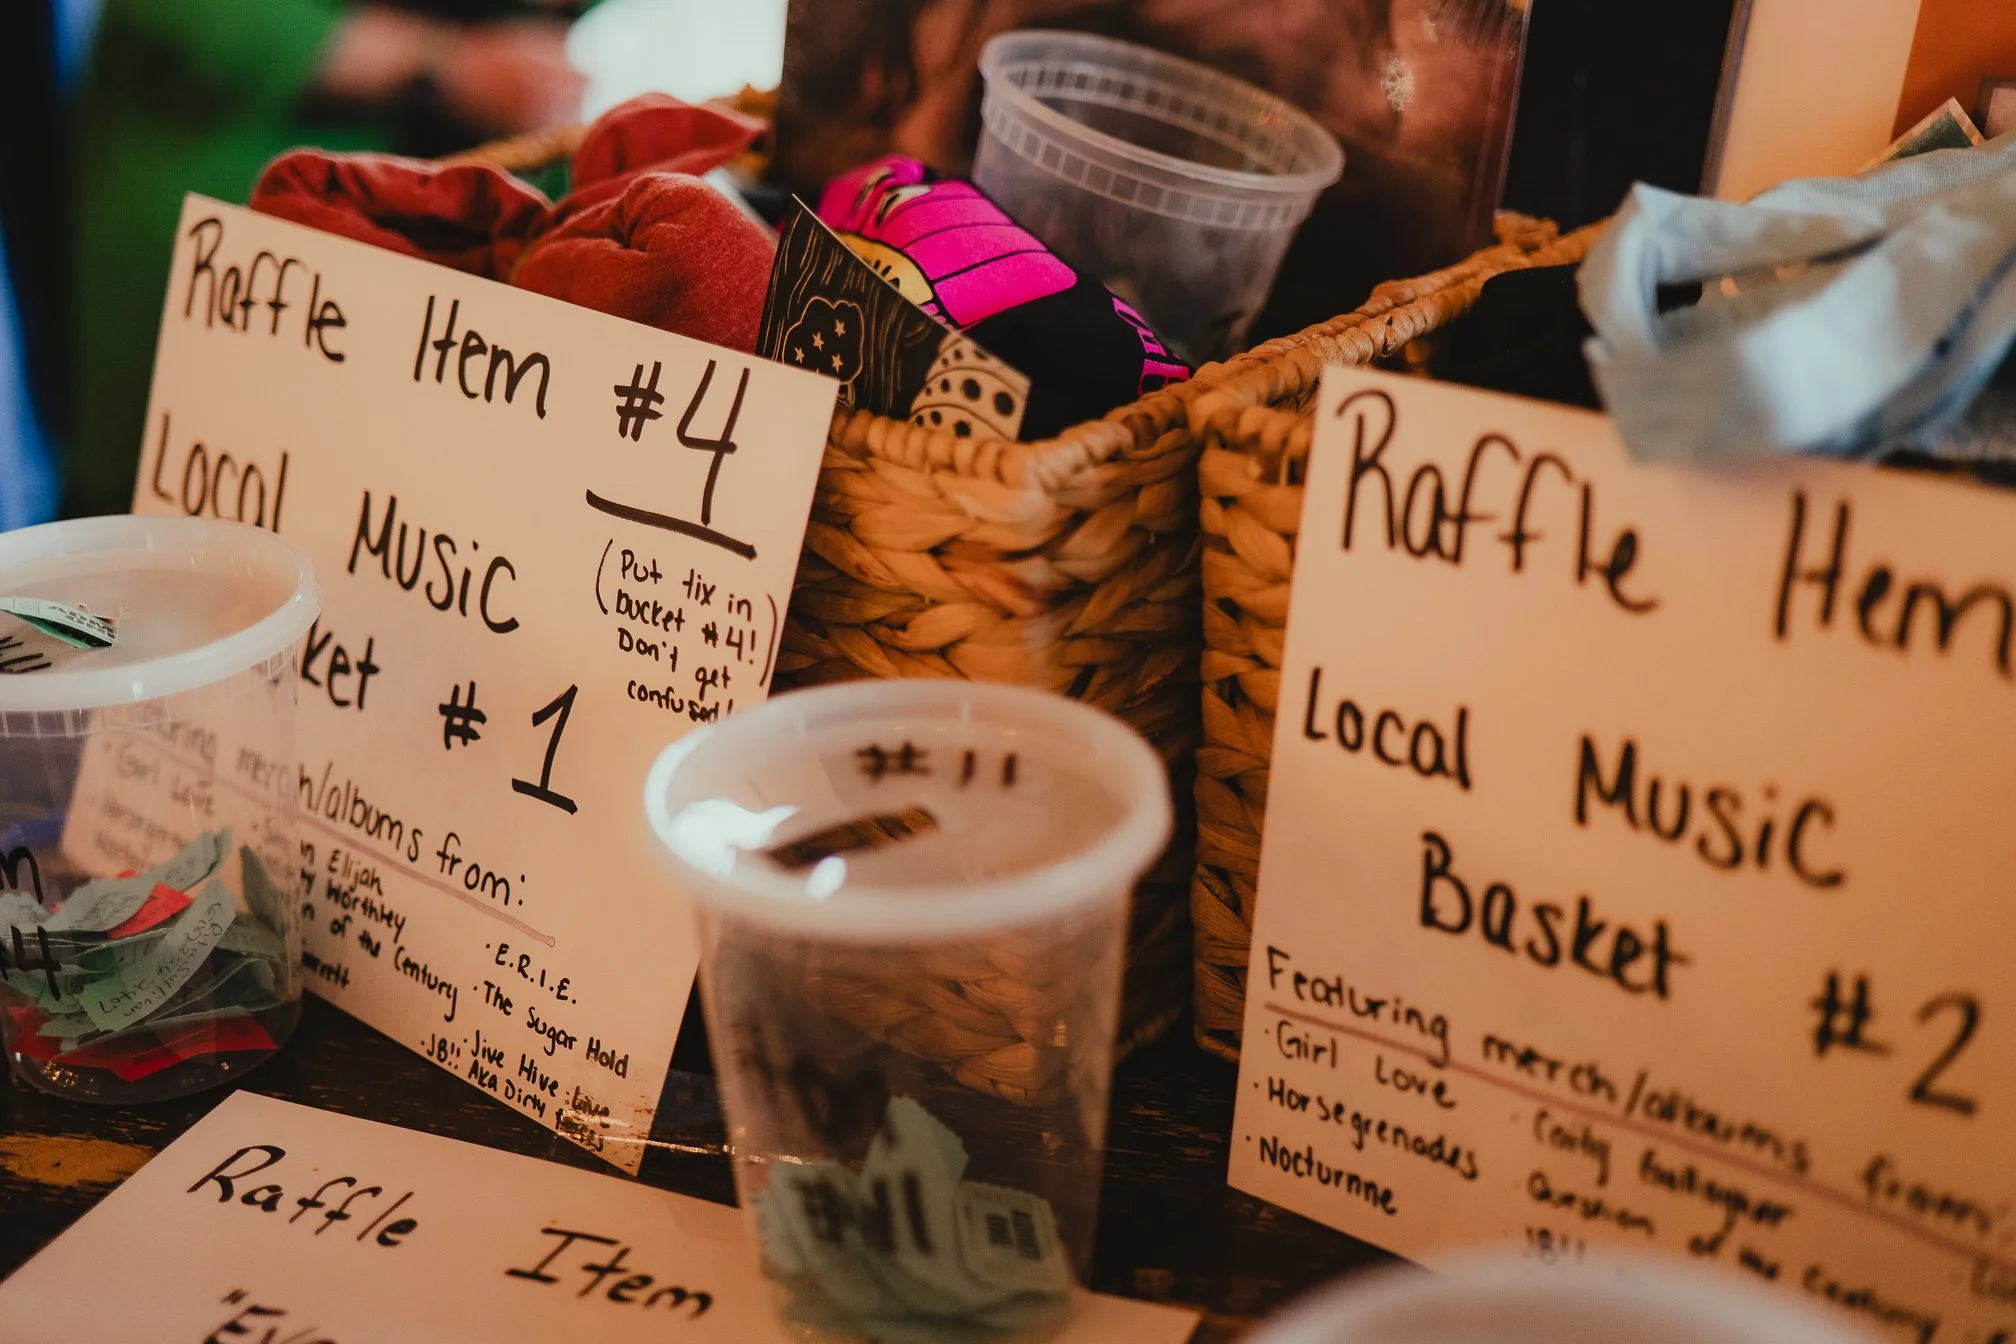 Raffle Item #4
Local Music
ket #1
(Put tix in
bucket #4!
Don't get
confused!)
merch/albums from:
Elijah
Worthey
of the Century
· E.R.I.E.
· The Sugar Hold
· Jive Hive
· JB!! AKA Dirty
Girl Love
#11
#11
Raffle Item
Local Music
Basket
#2
Featuring merch/albums from:
· Girl Love
· Horsegrenades
· Nocturnne
· Caity Gallagher
Question of the Century
JB!!
Raffle Item